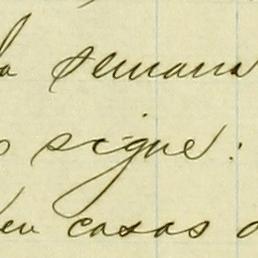 la semana
sigue:
en casas